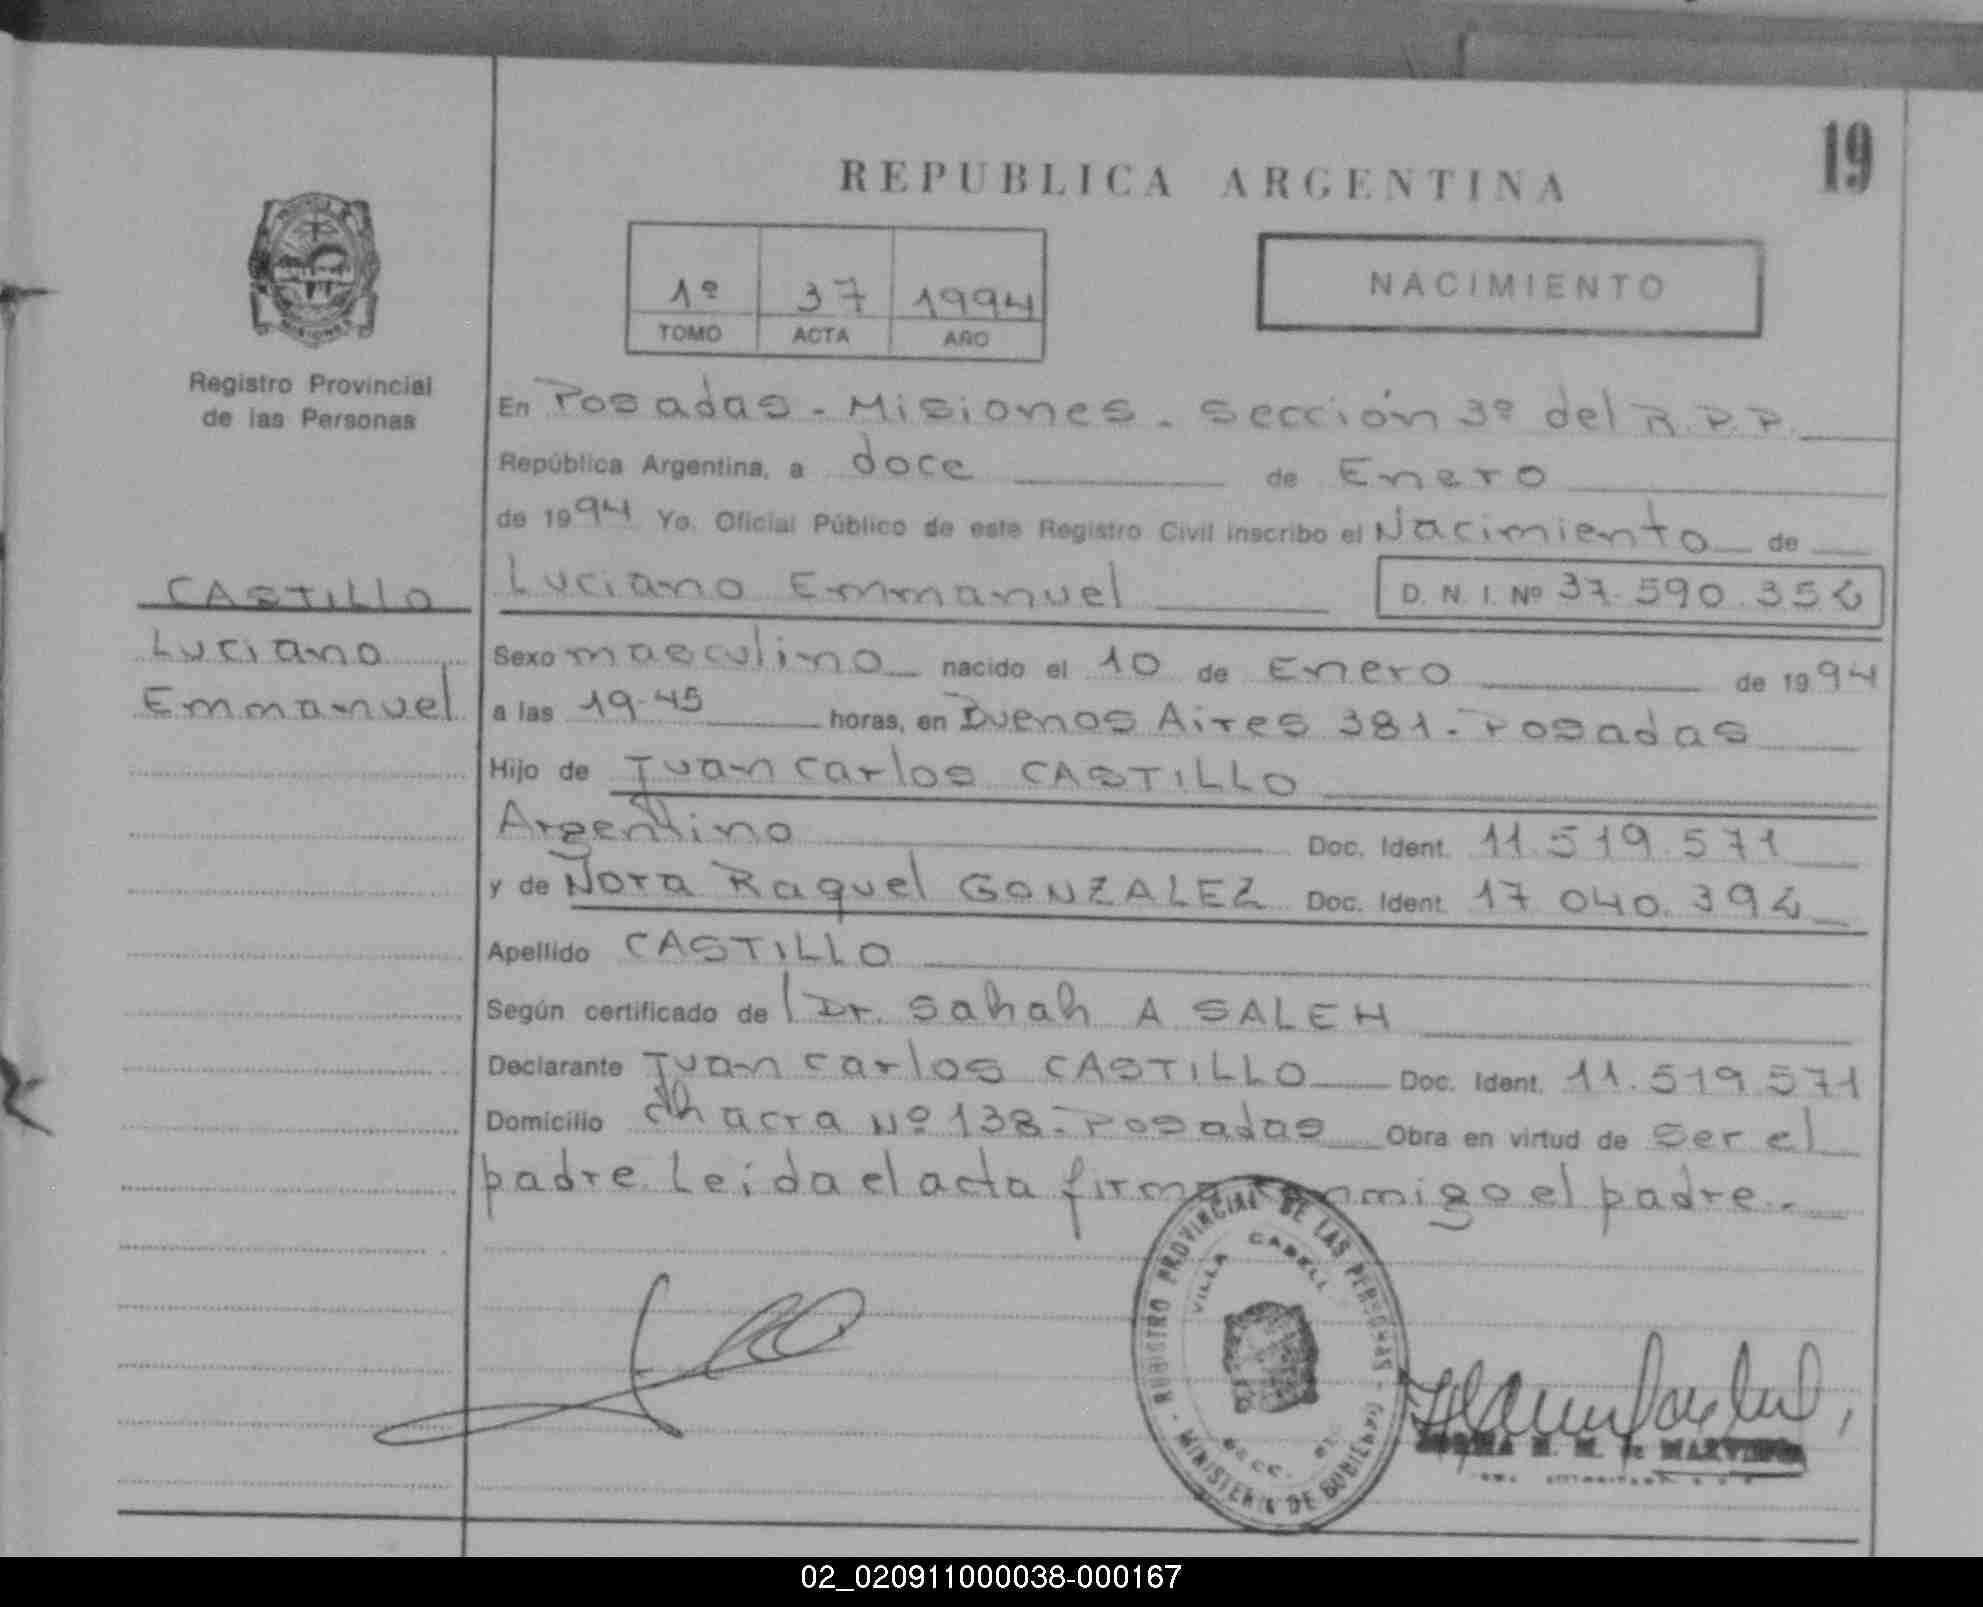 19
REPUBLICA ARGENTINA
1º 37 1994
TOMO ACTA AÑO
NACIMIENTO
Registro Provincial
de las Personas
CASTILLO
Luciano
Emmanuel
En Posadas - Misiones - Sección 3º del R.P.P.
República Argentina, a doce de Enero
de 1994 Yo. Oficial Público de este Registro Civil inscribo el Nacimiento de
Luciano Emmanuel D. N. I. Nº 37.590.352
Sexo masculino nacido el 10 de Enero de 1994
a las 19-45 horas, en Buenos Aires 381 - Posadas
Hijo de Juan Carlos CASTILLO
Argentino Doc. Ident. 11.519.571
y de Nora Raquel GONZALEZ Doc. Ident. 17 040.392
Apellido CASTILLO
Según certificado de Dr. Sahah A SALEH
Declarante Juan Carlos CASTILLO Doc. Ident. 11.519.571
Domicilio Chacra Nº 138 - Posadas Obra en virtud de ser el
padre. Leída el acta firma conmigo el padre.-
REGISTRO PROVINCIAL DE LAS PERSONAS
VILLA CABELL
SECC.
MINISTERIO DE GOBIERNO
NORMA M. M. de
02_020911000038-000167